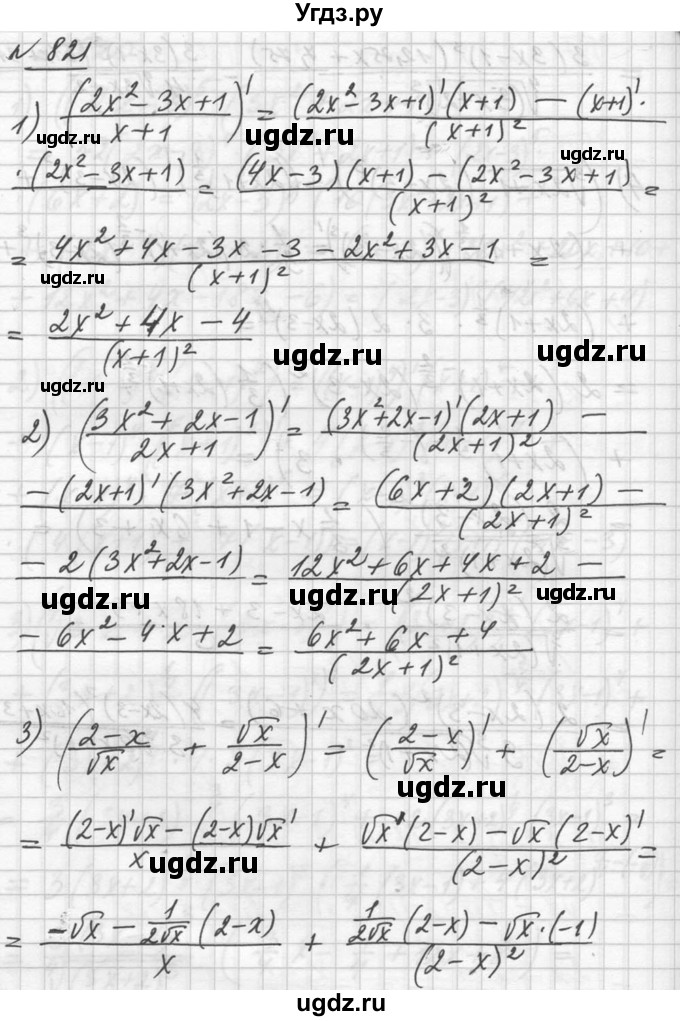 Угдз.ру
N 821
1) ((2x² - 3x + 1)/(x + 1))' = ((2x² - 3x + 1)'(x + 1) - (x + 1)' ·)/(x + 1)²
ugdz.ru ugdz.ru ugdz.ru
· (2x² - 3x + 1) = ((4x - 3)(x + 1) - (2x² - 3x + 1))/(x + 1)² =
= (4x² + 4x - 3x - 3 - 2x² + 3x - 1)/(x + 1)² =
ugdz.ru
= (2x² + 4x - 4)/(x + 1)²
ugdz.ru ugdz.ru
ugdz.ru
2) ((3x² + 2x - 1)/(2x + 1))' = ((3x² + 2x - 1)'(2x + 1) -)/(2x + 1)²
- (2x + 1)'(3x² + 2x - 1) = ((6x + 2)(2x + 1) -)/(2x + 1)²
- 2(3x² + 2x - 1) = (12x² + 6x + 4x + 2 -)/(2x + 1)²
ugdz.ru ugdz.ru ugdz.ru
- 6x² - 4x + 2 = (6x² + 6x + 4)/(2x + 1)²
3) ((2 - x)/√x + √x/(2 - x))' = ((2 - x)/√x)' + (√x/(2 - x))' =
ugdz.ru
= ((2 - x)'√x - (2 - x)√x')/x + (√x'(2 - x) - √x(2 - x)')/(2 - x)² =
ugdz.ru
= (-√x - 1/(2√x) (2 - x))/x + (1/(2√x) (2 - x) - √x · (-1))/(2 - x)²
ugdz.ru